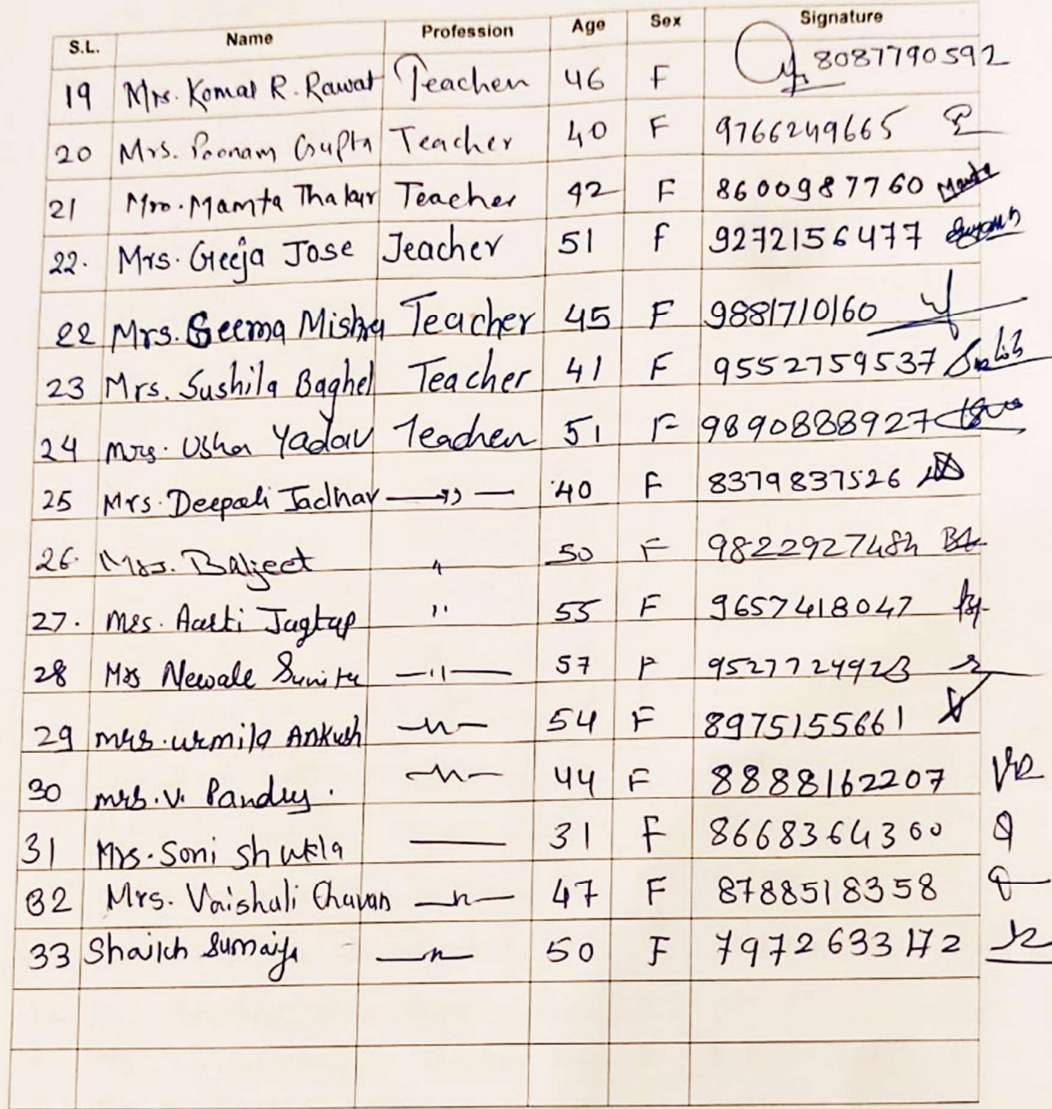 S.L. Name Profession Age Sex Signature
19 Mrs. Komal R. Rawat Teacher 46 F 8087790592
20 Mrs. Poonam Gupta Teacher 40 F 9766249665
21 Mrs. Mamta Thakur Teacher 42 F 8600987760 Mamta
22. Mrs. Geeja Jose Teacher 51 F 9272156477
22 Mrs. Seema Mishra Teacher 45 F 9881710160
23 Mrs. Sushila Baghel Teacher 41 F 9552759537
24 Mrs. Usha Yadav Teacher 51 F 9890888927
25 Mrs. Deepali Jadhav —〃— 40 F 8379837526
26. Mrs. Baljeet 〃 50 F 9822927484
27. Mrs. Aarti Jagtap 〃 55 F 9657418047
28 Mrs Newale Sunita —〃— 57 F
29 Mrs. Urmila Ankush —〃— 54 F 8975155661
30 Mrs. V. Pandey. —〃— 44 F 8888162207
31 Mrs. Soni Shukla —— 31 F 8668364360
32 Mrs. Vaishali Chavan —〃— 47 F 8788518358
33 Shaikh Sumaiya —〃— 50 F